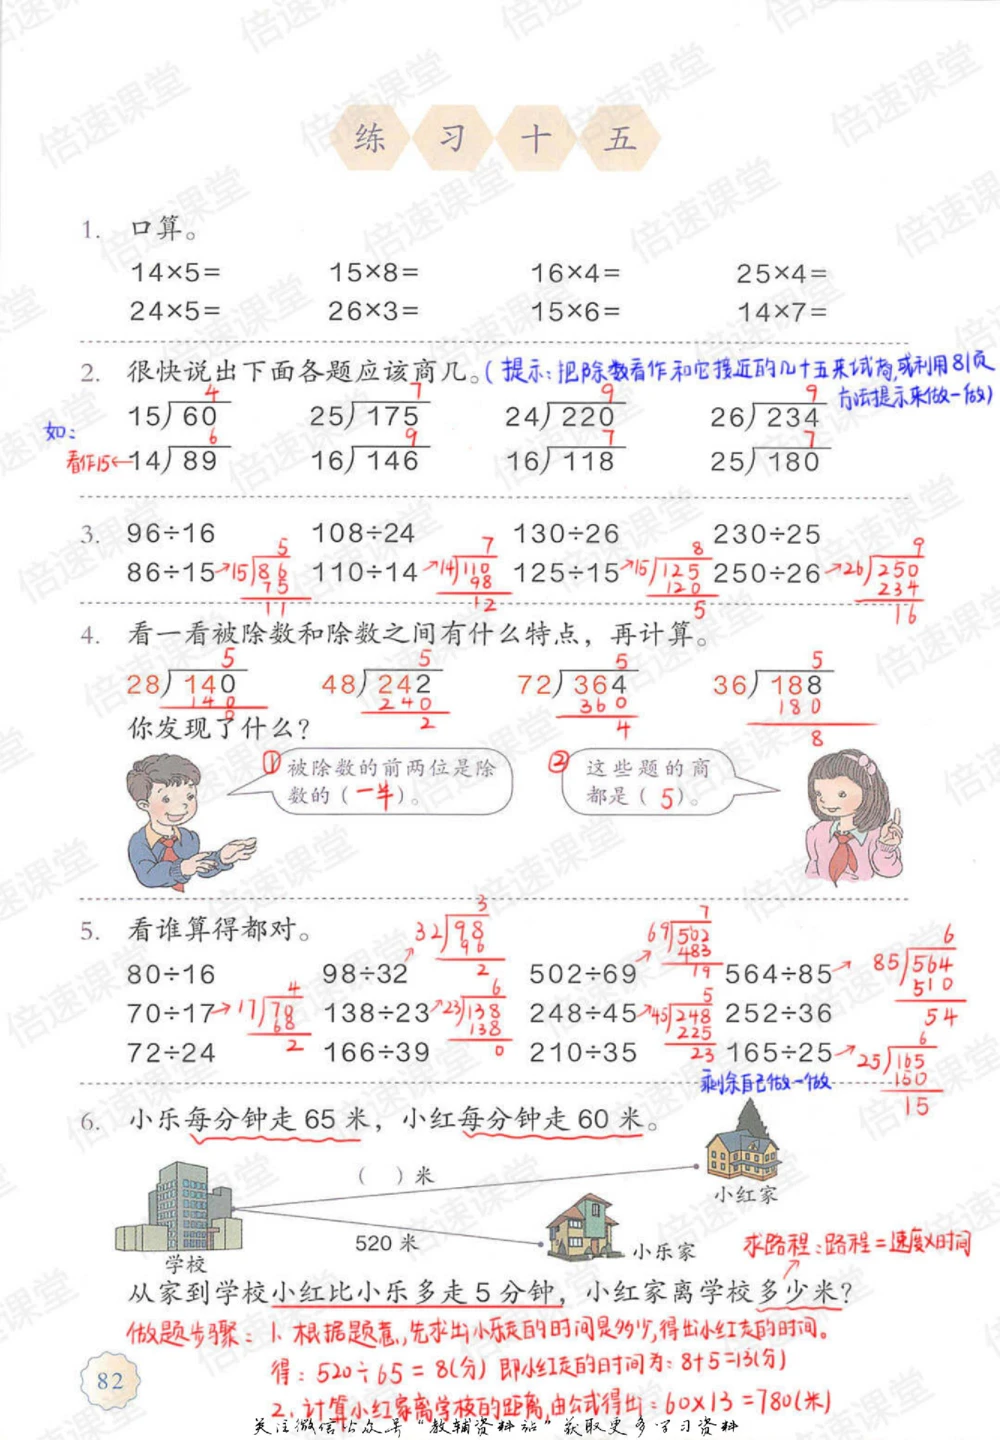 练习十五
1. 口算。
14×5= 15×8= 16×4= 25×4=
24×5= 26×3= 15×6= 14×7=
2. 很快说出下面各题应该商几。(提示:把除数看作和它接近的几十五来试商,或利用81页
方法提示来做一做)
4 7 9 9
15)60 25)175 24)220 26)234
如:
6 9 7 7
看作15←14)89 16)146 16)118 25)180
3. 96÷16 108÷24 130÷26 230÷25
5 7 8 9
86÷15→15)86 110÷14→14)110 125÷15→15)125 250÷26→26)250
75 98 120 234
11 12 5 16
4. 看一看被除数和除数之间有什么特点，再计算。
5 5 5 5
28)140 48)242 72)364 36)188
140 240 360 180
0 2 4 8
你发现了什么?
①被除数的前两位是除
数的(一半)。
②这些题的商
都是(5)。
5. 看谁算得都对。
3 7 6
32)98 69)502 85)564
96 483 510
2 19 54
80÷16 98÷32 502÷69 564÷85
4 6 5
70÷17→17)70 138÷23→23)138 248÷45→45)248 252÷36
68 138 225
2 0 23
72÷24 166÷39 210÷35 165÷25→25)165
6
150
15
剩余自己做一做
6. 小乐每分钟走 65 米，小红每分钟走 60 米。
( )米
小红家
520 米
学校
小乐家
求路程:路程=速度×时间
从家到学校小红比小乐多走 5 分钟，小红家离学校多少米?
做题步骤:1、根据题意,先求出小乐走的时间是多少,得出小红走的时间。
得:520÷65=8(分) 即小红走的时间为:8+5=13(分)
2、计算小红家离学校的距离,由公式得出:60×13=780(米)
82
关注微信公众号“教辅资料站”获取更多学习资料
倍速课堂